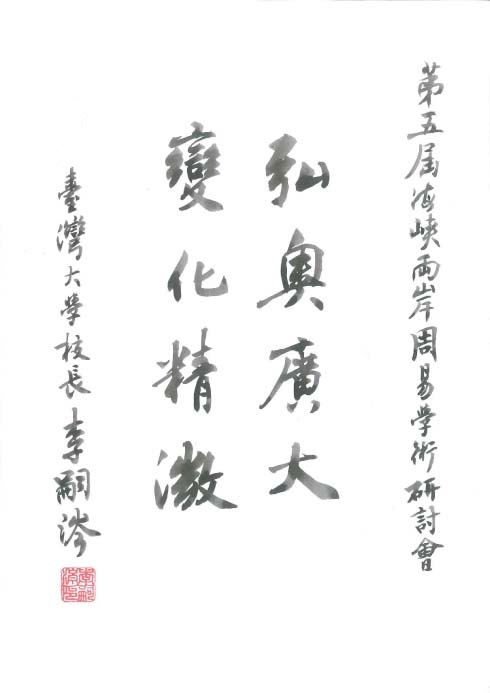 第五屆海峽兩岸周易學術研討會
弘奧廣大
變化精微
臺灣大學校長李嗣涔